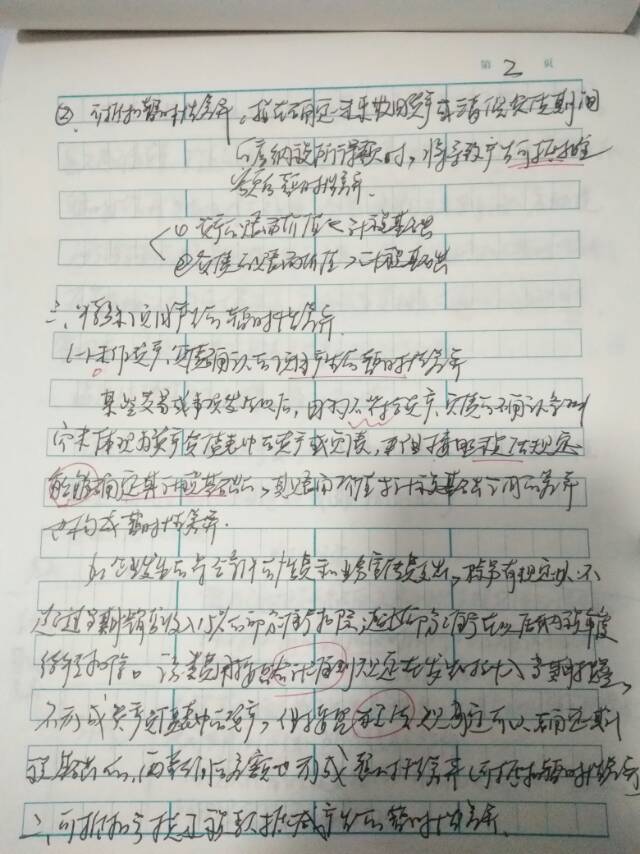 第 2 页
②. 可抵扣暂时性差异。指在确定未来收回资产或清偿负债期间
的应纳税所得额时，将导致产生可抵扣金
额的暂时性差异.
① 资产的账面价值 < 计税基础
② 负债的账面价值 > 计税基础
三、特殊项目产生的暂时性差异.
(一)未作资产、负债确认的项目产生的暂时性差异
某些交易或事项发生以后，因为不符合资产、负债的确认条件
而未体现为资产负债表中的资产或负债，但按照税法规定
能够确定其计税基础的，其账面价值与计税基础之间的差异
也构成暂时性差异.
如企业发生的符合条件的广告费和业务宣传费支出，除另有规定外，不
超过当期销售收入15%的部分准予扣除，超过部分准予在以后纳税年度
结转扣除。该类费用按照会计准则规定在发生时计入当期损益，
不形成资产负债表中的资产，但按照税法规定可以确定其计
税基础的，两者之间的差额也形成暂时性差异(可抵扣暂时性差异)
二、可抵扣亏损及税款抵减产生的暂时性差异.